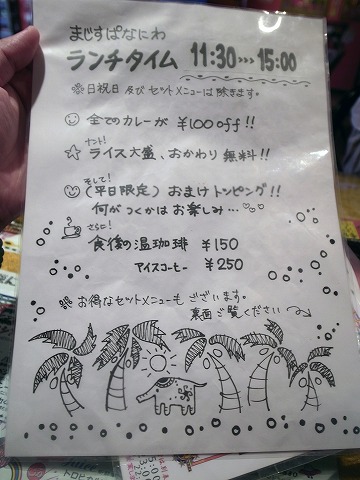 まじすぱなにわ
ランチタイム 11:30…>15:00
※日祝日及びセットメニューは除きます。
全てのカレーが ¥100off!!
ナント!
ライス大盛、おかわり無料!!
そして!
(平日限定)おまけトッピング!!
何がつくかはお楽しみ…
さらに!
食後の温珈琲 ¥150
アイスコーヒー ¥250
※お得なセットメニューもございます。
裏面ご覧ください